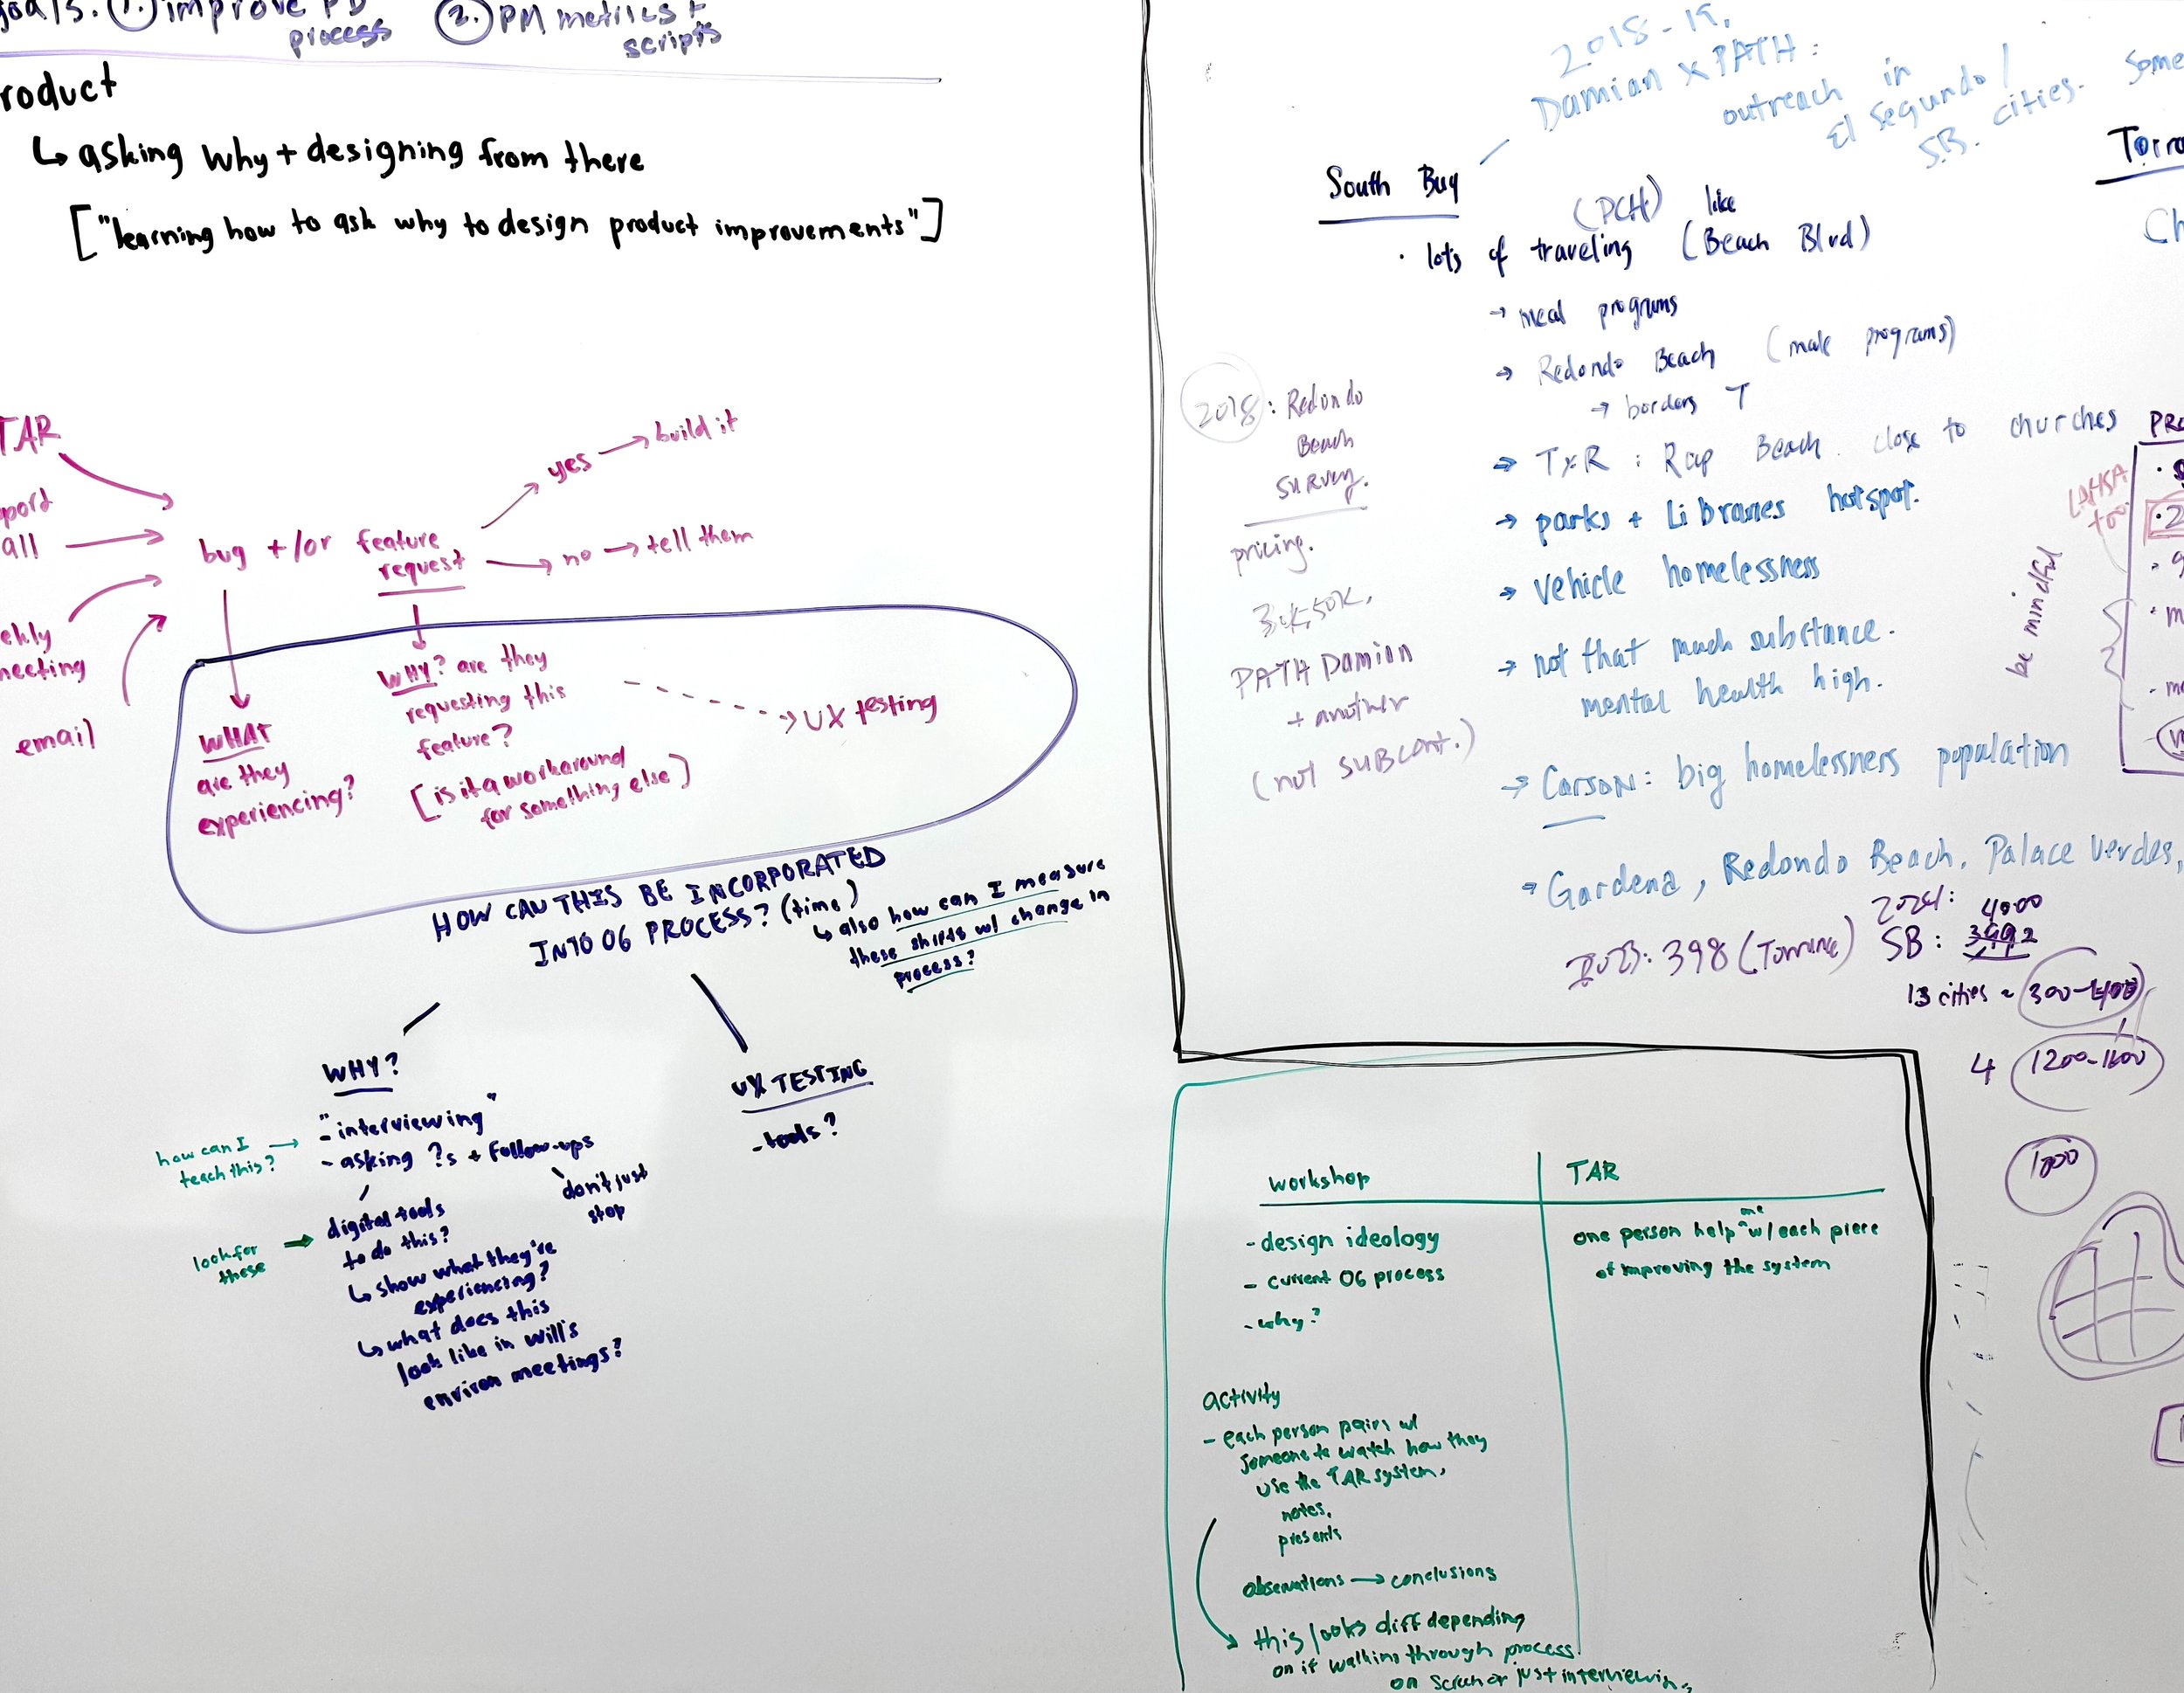 goals: 1. improve PD
process
2. PM metrics +
scripts
roduct
↳ asking why + designing from there
["learning how to ask why to design product improvements"]
TAR
port
all
ekly
meeting
email
bug +/or feature
request
yes → build it
no → tell them
WHAT
are they
experiencing?
WHY? are they
requesting this
feature?
[is it a workaround
for something else]
UX testing
HOW CAN THIS BE INCORPORATED
INTO OG PROCESS? (time)
↳ also how can I measure
these shifts w/ change in
process?
WHY?
- "interviewing"
- asking ?s + follow-ups
don't just
stop
how can I
teach this?
digital tools
to do this?
↳ show what they're
experiencing?
↳ what does this
look like in Will's
environ meetings?
look for
these
UX TESTING
- tools?
2018-19,
Damian x PATH:
outreach in
El Segundo /
SB. cities.
Some
South Bay
(PCH) like
· lots of traveling (Beach Blvd)
→ meal programs
→ Redondo Beach (male programs)
→ borders T
→ TxR : Rap Beach. close to churches
→ parks + Libraries hotspot.
→ vehicle homelessness
→ not that much substance.
mental health high.
→ Carson: big homelessness population
→ Gardena, Redondo Beach, Palace Verdes,
2018: Redondo
Beach
survey.
pricing.
50K,
PATH Damian
+ another
(not subcont.)
LAHSA
too.
be mindful
398 (Torrance)
2024: 4000
SB: 3992
13 cities ~ 300-400
4 1200-1600
1800
workshop
- design ideology
- current OG process
- why?
TAR
one person help me w/ each piece
of improving the system
activity
- each person pairs w/
someone to watch how they
use the TAR system,
notes,
presents
observations → conclusions
this looks diff depending
on if walking through process
on screen or just interviewing